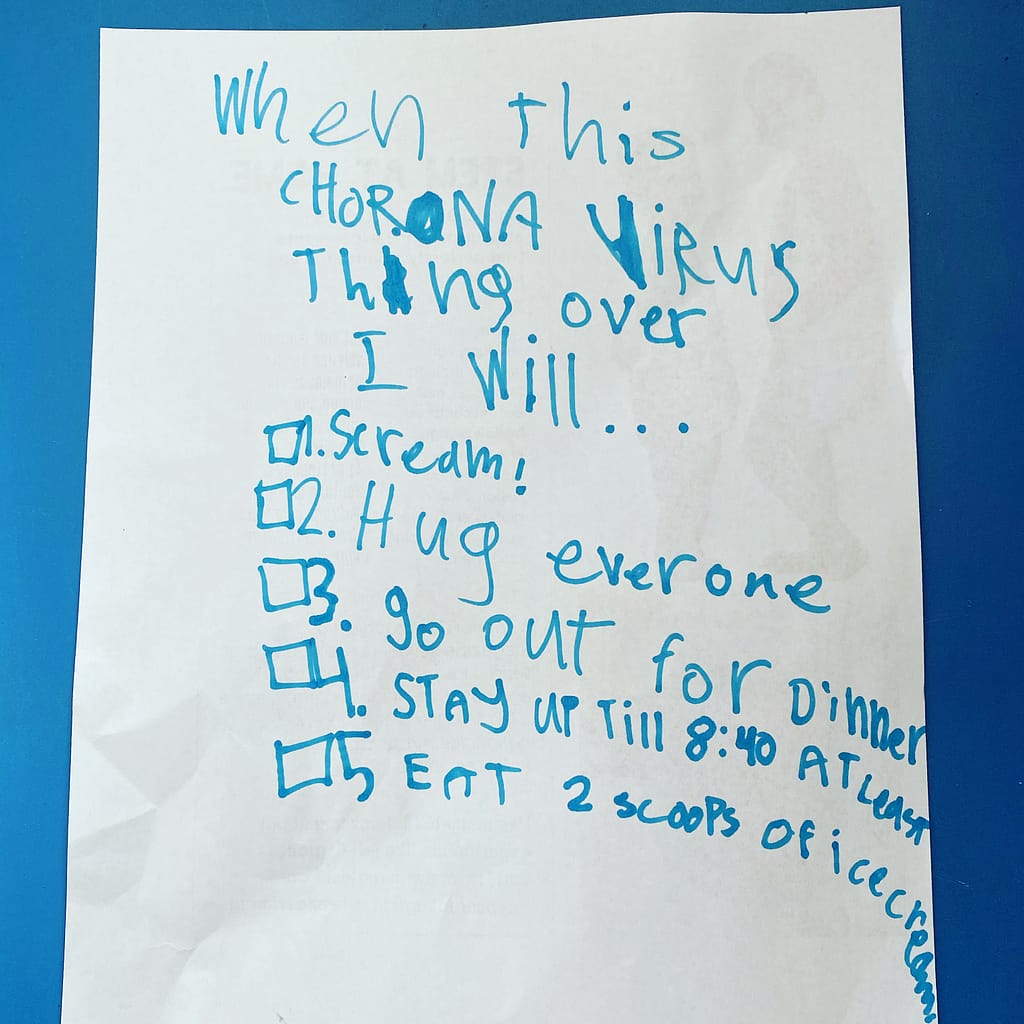 When this
CHORONA VIRUS
Thing over
I Will...
1. Scream!
2. Hug everone
3. go out for Dinner
4. STAY UP Till 8:40 AT Least
5 EAT 2 scoops of icecream